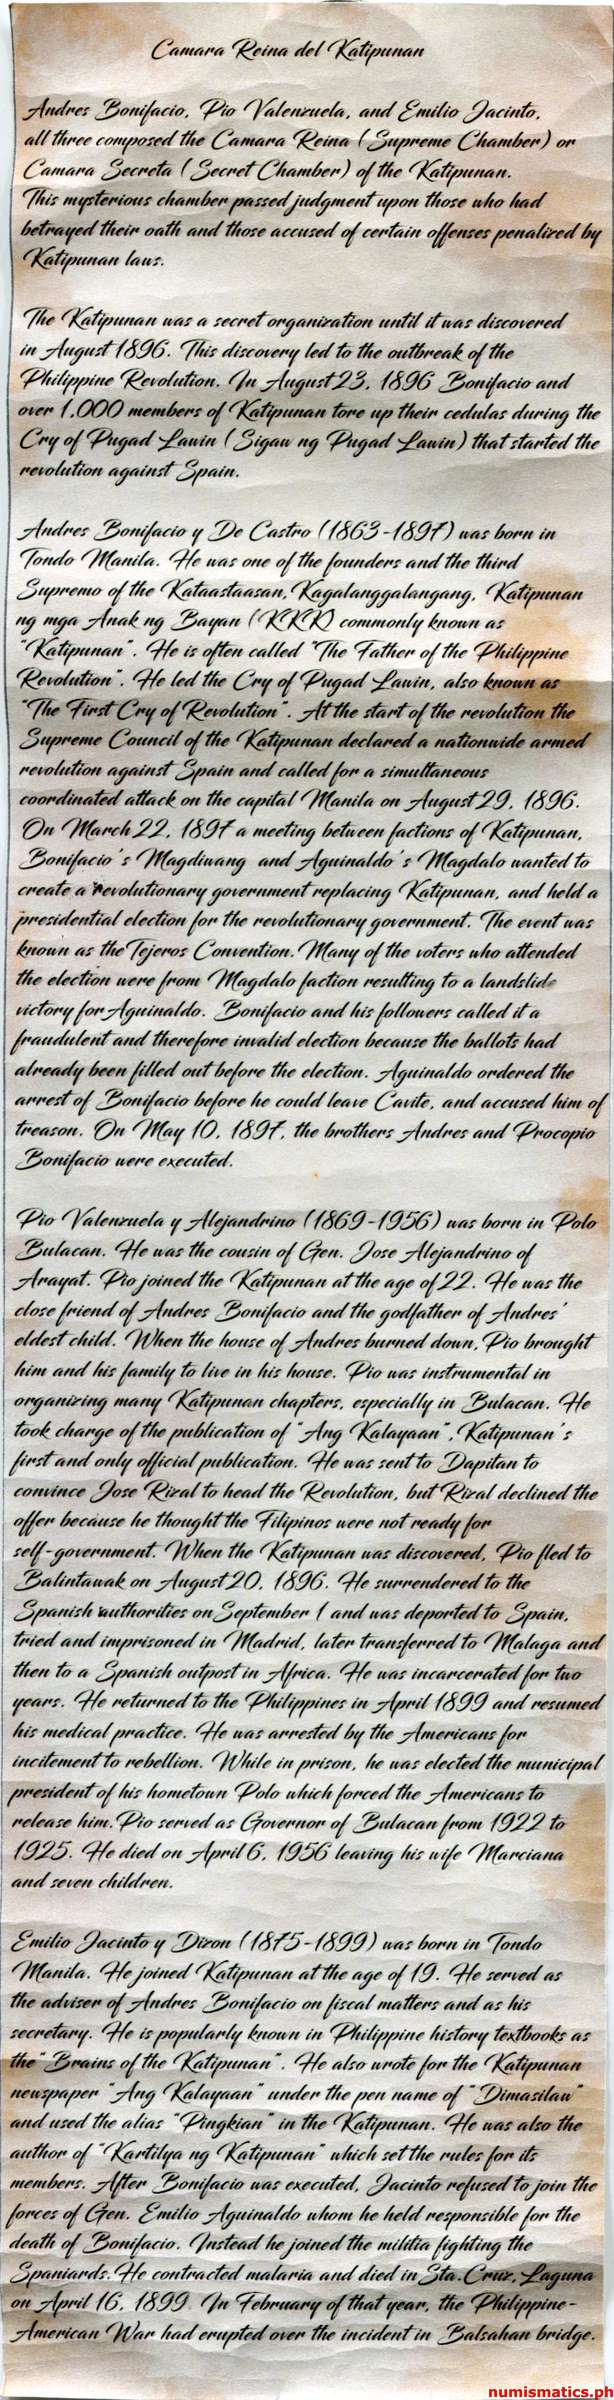 Camara Reina del Katipunan
Andres Bonifacio, Pio Valenzuela, and Emilio Jacinto,
all three composed the Camara Reina (Supreme Chamber) or
Camara Secreta (Secret Chamber) of the Katipunan.
This mysterious chamber passed judgment upon those who had
betrayed their oath and those accused of certain offenses penalized by
Katipunan laws.
The Katipunan was a secret organization until it was discovered
in August 1896. This discovery led to the outbreak of the
Philippine Revolution. In August 23, 1896 Bonifacio and
over 1,000 members of Katipunan tore up their cedulas during the
Cry of Pugad Lawin (Sigaw ng Pugad Lawin) that started the
revolution against Spain.
Andres Bonifacio y De Castro (1863-1897) was born in
Tondo Manila. He was one of the founders and the third
Supremo of the Kataastaasan, Kagalanggalangang, Katipunan
ng mga Anak ng Bayan (KKK) commonly known as
"Katipunan". He is often called "The Father of the Philippine
Revolution". He led the Cry of Pugad Lawin, also known as
"The First Cry of Revolution". At the start of the revolution the
Supreme Council of the Katipunan declared a nationwide armed
revolution against Spain and called for a simultaneous
coordinated attack on the capital Manila on August 29, 1896.
On March 22, 1897 a meeting between factions of Katipunan,
Bonifacio's Magdiwang and Aguinaldo's Magdalo wanted to
create a revolutionary government replacing Katipunan, and held a
presidential election for the revolutionary government. The event was
known as the Tejeros Convention. Many of the voters who attended
the election were from Magdalo faction resulting to a landslide
victory for Aguinaldo. Bonifacio and his followers called it a
fraudulent and therefore invalid election because the ballots had
already been filled out before the election. Aguinaldo ordered the
arrest of Bonifacio before he could leave Cavite, and accused him of
treason. On May 10, 1897, the brothers Andres and Procopio
Bonifacio were executed.
Pio Valenzuela y Alejandrino (1869-1956) was born in Polo
Bulacan. He was the cousin of Gen. Jose Alejandrino of
Arayat. Pio joined the Katipunan at the age of 22. He was the
close friend of Andres Bonifacio and the godfather of Andres'
eldest child. When the house of Andres burned down, Pio brought
him and his family to live in his house. Pio was instrumental in
organizing many Katipunan chapters, especially in Bulacan. He
took charge of the publication of "Ang Kalayaan", Katipunan's
first and only official publication. He was sent to Dapitan to
convince Jose Rizal to head the Revolution, but Rizal declined the
offer because he thought the Filipinos were not ready for
self-government. When the Katipunan was discovered, Pio fled to
Balintawak on August 20, 1896. He surrendered to the
Spanish authorities on September 1 and was deported to Spain,
tried and imprisoned in Madrid, later transferred to Malaga and
then to a Spanish outpost in Africa. He was incarcerated for two
years. He returned to the Philippines in April 1899 and resumed
his medical practice. He was arrested by the Americans for
incitement to rebellion. While in prison, he was elected the municipal
president of his hometown Polo which forced the Americans to
release him. Pio served as Governor of Bulacan from 1922 to
1925. He died on April 6, 1956 leaving his wife Marciana
and seven children.
Emilio Jacinto y Dizon (1875-1899) was born in Tondo
Manila. He joined Katipunan at the age of 19. He served as
the adviser of Andres Bonifacio on fiscal matters and as his
secretary. He is popularly known in Philippine history textbooks as
the "Brains of the Katipunan". He also wrote for the Katipunan
newspaper "Ang Kalayaan" under the pen name of "Dimasilaw"
and used the alias "Pingkian" in the Katipunan. He was also the
author of "Kartilya ng Katipunan" which set the rules for its
members. After Bonifacio was executed, Jacinto refused to join the
forces of Gen. Emilio Aguinaldo whom he held responsible for the
death of Bonifacio. Instead he joined the militia fighting the
Spaniards. He contracted malaria and died in Sta. Cruz, Laguna
on April 16, 1899. In February of that year, the Philippine-
American War had erupted over the incident in Balsahan bridge.
numismatics.ph